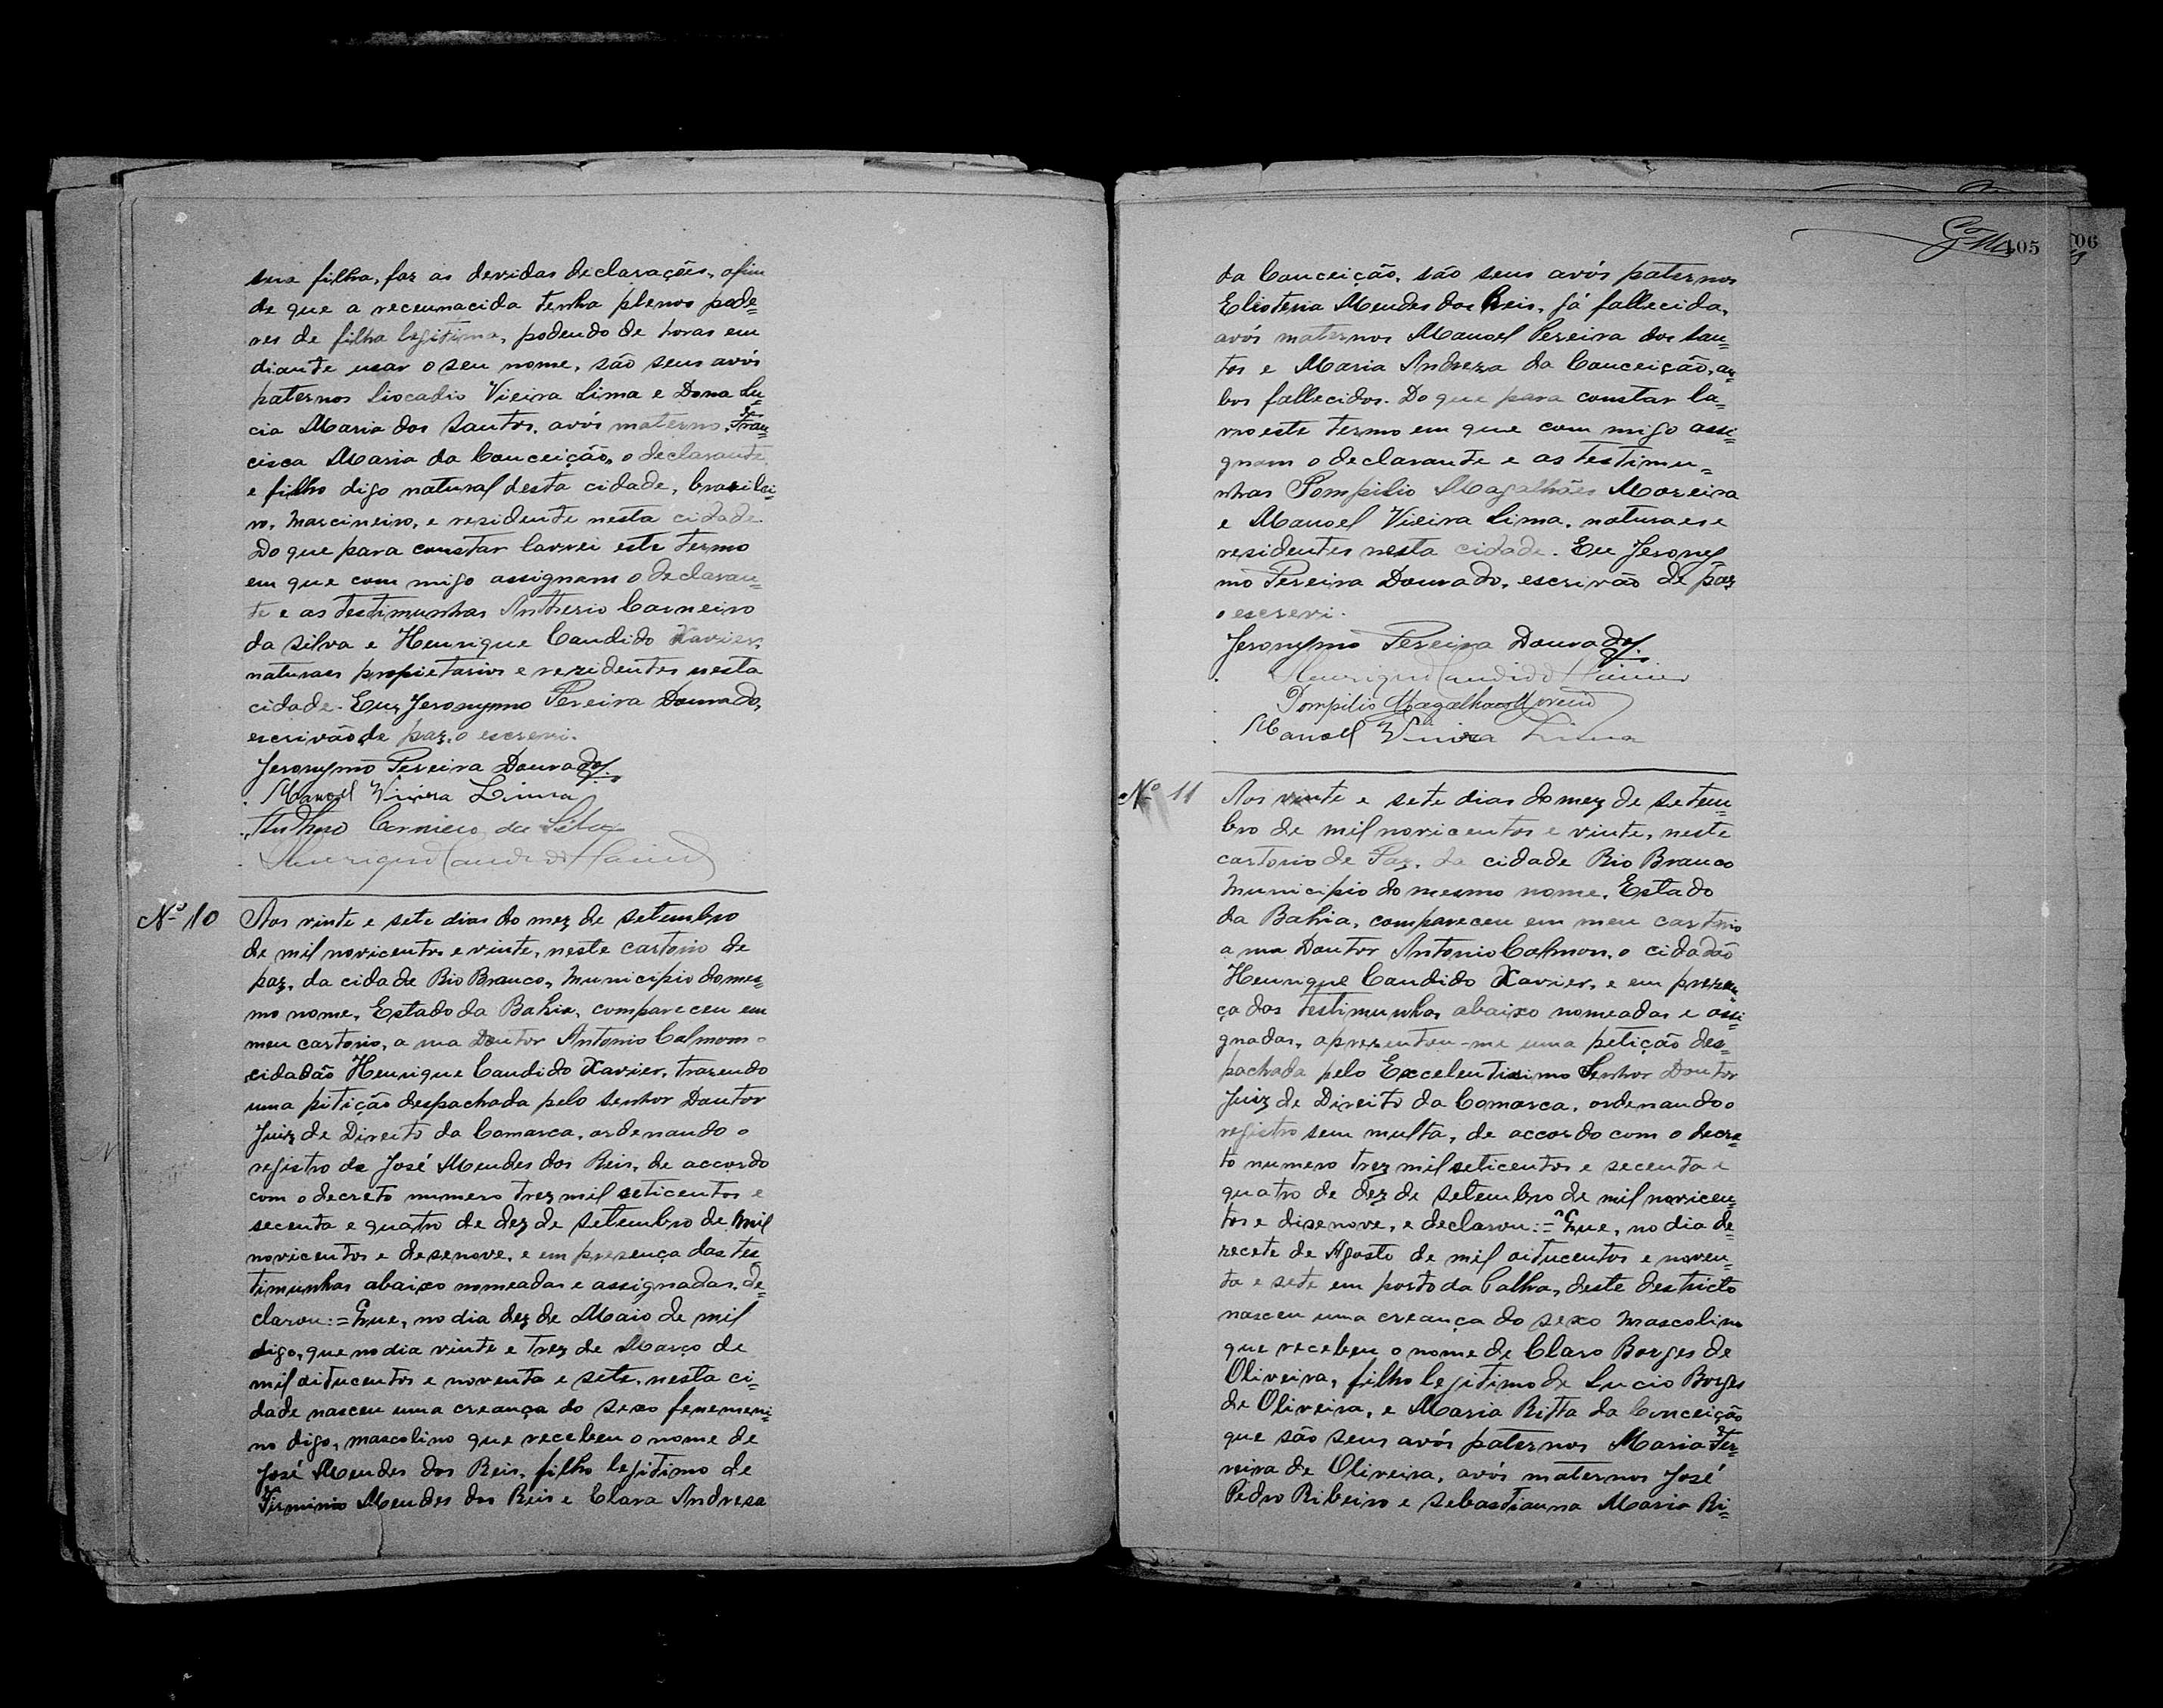 sua filha, faz as devidas declarações, afim
de que a recemnacida tenha plenos pode=
res de filha legitima, podendo de horas em
diante usar o seu nome, são seus avós
paternos Liocadio Vieira Lima e Dona Lu=
cia Maria dos Santos, avós materno, Fran=
cisca Maria da Conceição, o declarante
e filho digo natural desta cidade, brazilei=
ro, marcineiro, e residente nesta cidade
Do que para constar lavrei este termo
em que com migo assignam o declaran=
te e as testimunhas Antherio Carneiro
da Silva e Henrique Candido Xavier,
naturaes propietarios e rezidentes nesta
cidade. Eu, Jeronymo Pereira Dourado,
escrivão de paz, o escrevi.
Jeronymo Pereira Dourado
Manoel Vieira Lima
Carneiro da Silva
Henrique Candido Xavier
Nº 10 Aos vinte e sete dias do mez de setembro
de mil novicentos e vinte, neste cartorio de
paz, da cidade Rio Branco, Municipio do mes=
mo nome, Estado da Bahia, compareceu em
meu cartorio, a rua Doutor Antonio Calmom o
cidadão Henrique Candido Xavier, trazendo
uma pitição despachada pelo senhor Doutor
Juiz de Direito da Comarca, ordenando o
registro de José Mendes dos Reis, de accordo
com o decreto numero trez mil seticentos e
secenta e quatro de dez de setembro de mil
novicentos e desenove, e em presença das tes
timunhas abaixo nomeadas e assignadas, de=
clarou:=Que, no dia dez de Maio de mil
digo, que no dia vinte e trez de Março de
mil oitucentos e noventa e sete, nesta ci=
dade nasceu uma creança do sexo fenemeni=
no digo, mascolino que recebeu o nome de
José Mendes dos Reis, filho legitimo de
Firminio Mendes dos Reis e Clara Andresa
105
106
da Conceição, são seus avós paternos
Elioteria Mendes dos Reis, já fallecida,
avós maternos Manoel Pereira dos San=
tos e Maria Andreza da Conceição, am=
bos fallecidos. Do que para constar la=
vro este termo em que com migo assi=
gnam o declarante e as testimu=
nhas Pompilio Magalhães Moreira
e Manoel Vieira Lima, naturaes e
residentes nesta cidade. Eu Jerony
mo Pereira Dourado, escrivão de paz
o escrevi.
Jeronymo Pereira Dourado
Henrique Candido Xavier
Pompilio Magalhaes Moreira
Manoel Vieira Lima
Nº 11 Aos vinte e sete dias do mez de setem=
bro de mil novicentos e vinte, neste
cartorio de Paz, da cidade Rio Branco
Municipio do mesmo nome, Estado
da Bahia, compareceu em meu cartorio
a rua Doutor Antonio Calmon, o cidadão
Henrique Candido Xavier, e em prezen=
ça das testimunhas abaixo nomeadas e assi=
gnadas, aprezentou-me uma petição des=
pachada pelo Excelentissimo Senhor Doutor
Juiz de Direito da Comarca, ordenando o
registro sem multa, de accordo com o decre
to numero trez mil seticentos e secenta e
quatro de dez de setembro de mil novicen=
tos e dizenove, e declarou:=Que, no dia de=
zecete de Agosto de mil oitucentos e noven=
ta e sete em porto da Palha, deste destricto
nasceu uma creança do sexo mascolino
que recebeu o nome de Claro Borges de
Oliveira, filho legitimo de Lucio Borges
de Oliveira, e Maria Ritta da Conceição
que são seus avós paternos Maria Fer=
reira de Oliveira, avós maternos José
Pedro Ribeiro e Sebastianna Maria Ri=